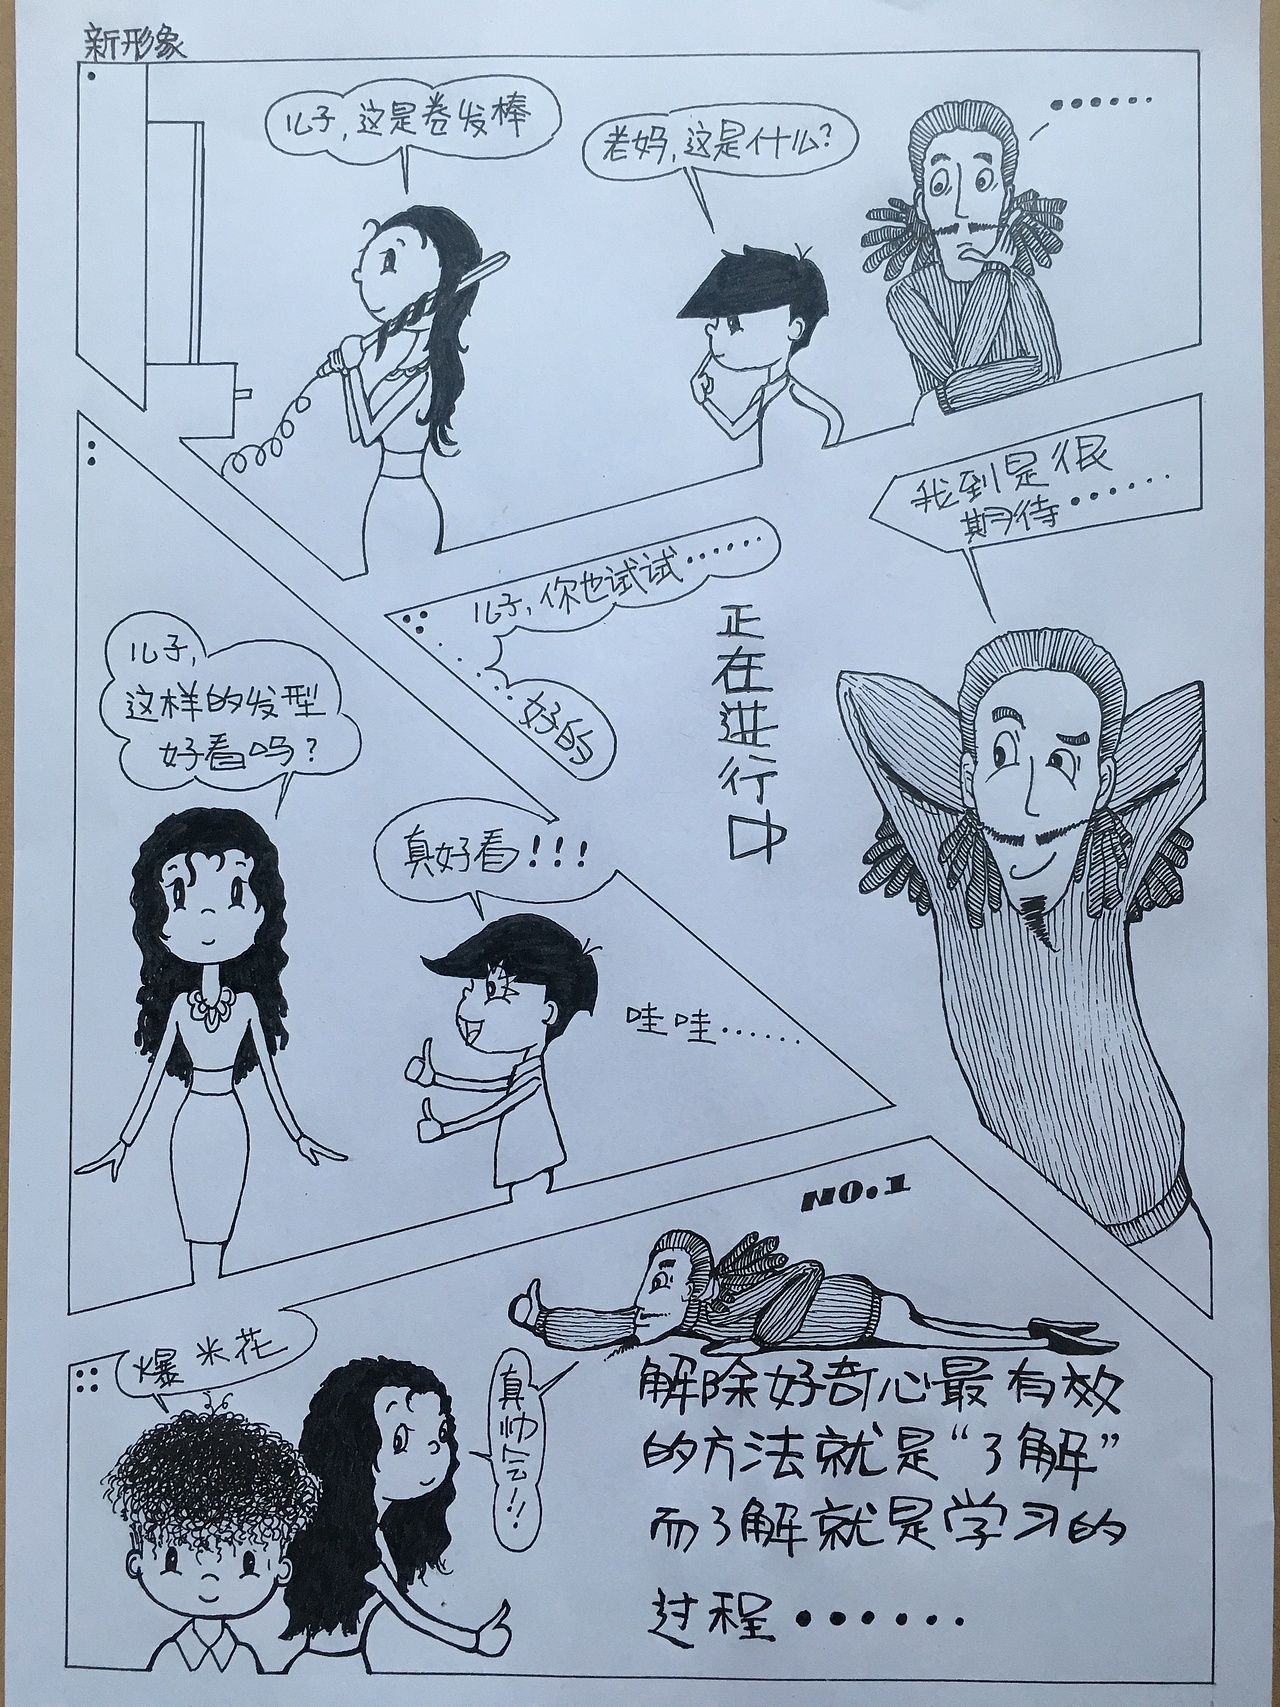 新形象
儿子,这是卷发棒
老妈,这是什么?
······
儿子,
这样的发型
好看吗?
真好看!!!
哇哇······
儿子,你也试试······
好的
正在进行中
我到是很
期待······
爆米花
真帅气!!
NO.1
解除好奇心最有效
的方法就是“了解”
而了解就是学习的
过程······